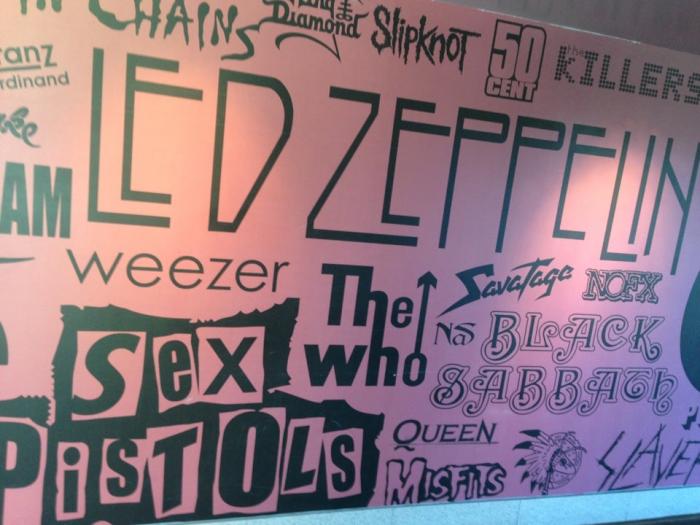 CHAINS
King Diamond
SlipKnoT
50 CENT
the KILLERS
anz
rdinand
AM
LED ZEPPELIN
weezer
The who
Savatage
NOFX
Nas
BLACK
SABBATh
Sex
PiSTOLs
QUEEN
MiSFiTS
SLAYER